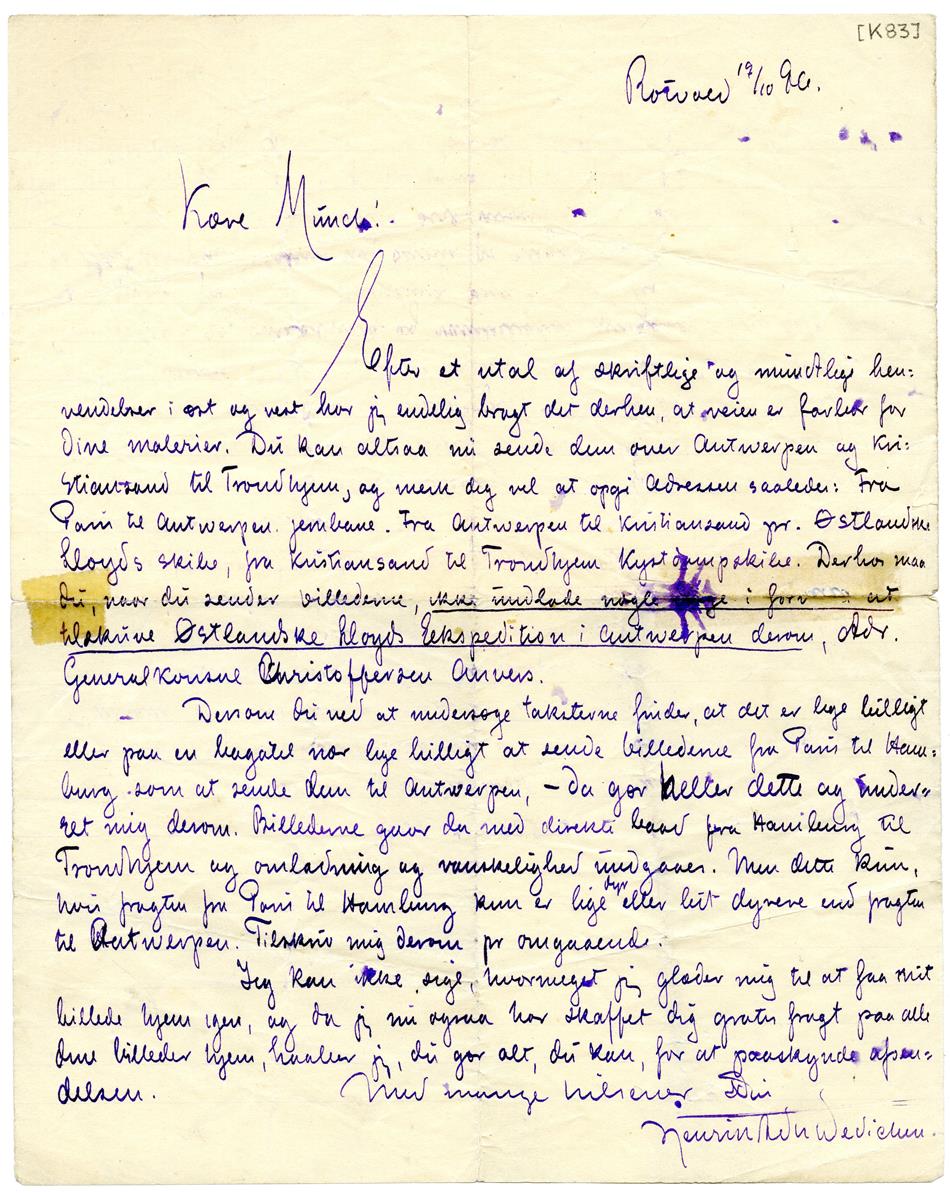 [K83]
Rotvold 19/10 96.
Kære Münch!
Efter et utal af skriftlige og mündtlige hen-
vendelser i øst og vest har jeg endelig bragt det derhen, at veien er farbar for
Dine malerier. Du kan altsaa nü sende dem over Antwerpen og Kri-
stiansand til Trondhjem, og merk dig vel at opgi Adressen saaledes: Fra
Paris til Antwerpen jernbane. Fra Antwerpen til Kristiansand pr. Østlandske
Lloyds skibe, fra Kristiansand til Trondhjem Kystdampskibe. Derhos maa
du, naar du sender billederne, ikke ündlade nogle dage i forveien at
tilskrive Østlandske Lloyds Eekspedition i Antwerpen derom, Adr.
Generalkonsul Christoffersen Anvers.
Dersom du ved at undersøge taksterne finder, at det er lige billigt
eller paa en bagatel nær lige billigt at sende billederne fra Paris til Ham-
burg som at sende dem til Antwerpen, – da gør heller dette og ünder-
ret mig derom. Billederne gaar da med direkte baad fra Hamburg til
Trondhjem og omladning og vanskelighed ündgaaes. Men dette kün,
hvis fragten fra Paris til Hamburg kun er lige dyr eller lidt dyrere end fragten
til Antwerpen. Tilskriv mig derom pr omgaaende.
Jeg kan ikke sige, hvormeget jeg glæder mig til at faa mit
billede hjem igen, og da jeg nu ogsaa har skaffet dig gratis fragt paa alle
dine billeder hjem, haaber jeg, du gør alt, du kan, for at paaskynde afsen-
delsen. Med mange hilsener Din